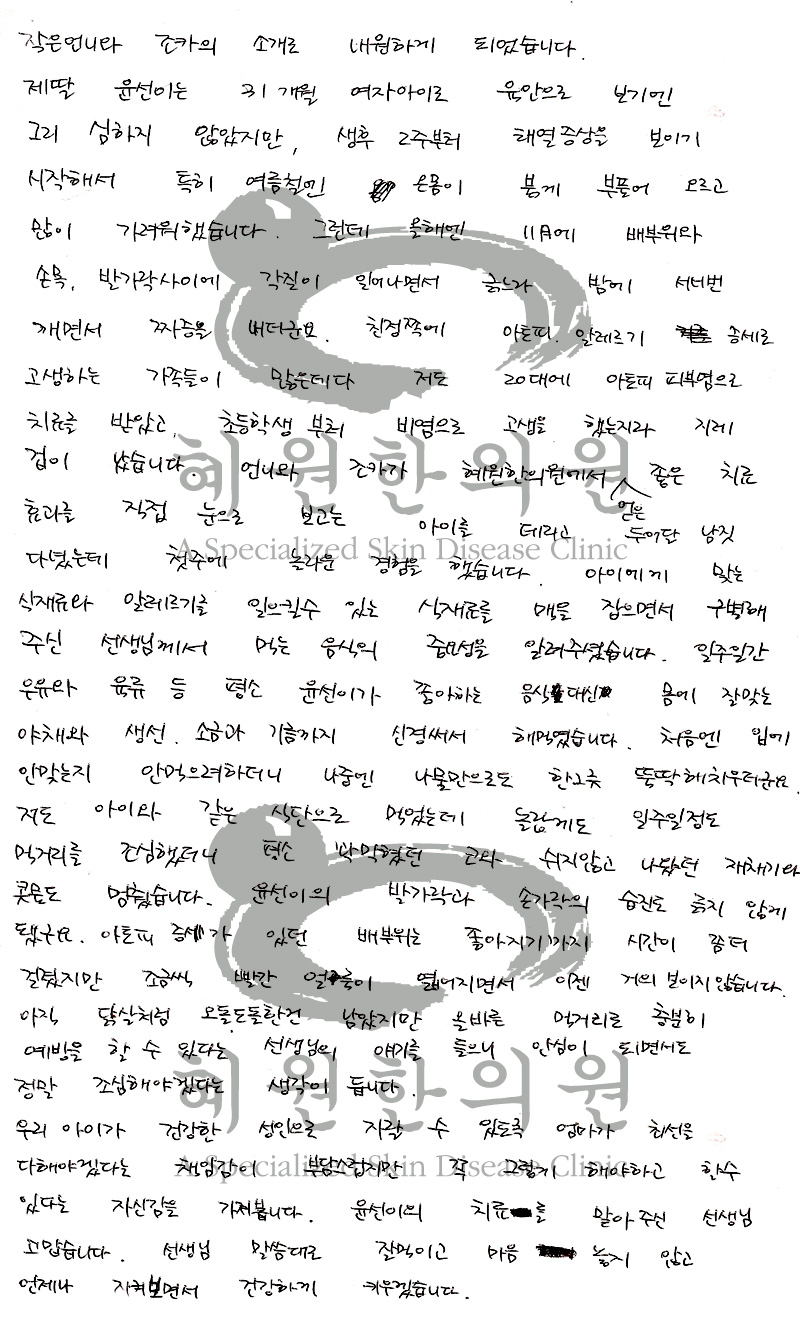 작은언니와 조카의 소개로 내원하게 되었습니다.
제딸 윤선이는 31개월 여자아이로 육안으로 보기엔
그리 심하지 않았지만, 생후 2주부터 태열증상을 보이기
시작해서 특히 여름철엔 온몸이 붉게 부풀어 오르고
많이 가려워했습니다. 그런데 올해엔 11月에 배부위와
손목, 발가락사이에 각질이 일어나면서 긁느라 밤에 서너번
깨면서 짜증을 내더군요. 친정쪽에 아토피. 알레르기 증세로
고생하는 가족들이 많은데다 저도 20대에 아토피 피부염으로
치료를 받았고, 초등학생 부터 비염으로 고생을 했는지라 지레
겁이 났습니다. 언니와 조카가 혜원한의원에서 얻은 좋은 치료
효과를 직접 눈으로 보고는 아이를 데리고 두어달 남짓
다녔는데 첫주에 놀라운 경험을 했습니다. 아이에게 맞는
식재료와 알레르기를 일으킬수 있는 식재료를 맥을 짚으면서 구별해
주신 선생님께서 먹는 음식의 중요성을 알려주셨습니다. 일주일간
우유와 육류 등 평소 윤선이가 좋아하는 음식 대신 몸에 잘맞는
야채와 생선. 소금과 기름까지 신경써서 해먹였습니다. 처음엔 입에
안맞는지 안먹으려하더니 나중엔 나물만으로도 한그릇 뚝딱해치우더군요.
저도 아이와 같은 식단으로 먹었는데 놀랍게도 일주일정도
먹거리를 조심했더니 평소 꽉막혔던 코와 쉬지않고 나왔던 재채기와
콧물도 멈췄습니다. 윤선이의 발가락과 손가락의 습진도 긁지 않게
됐구요. 아토피 증세가 있던 배부위는 좋아지기까지 시간이 좀더
걸렸지만 조금씩 빨간 얼룩이 엷어지면서 이젠 거의 보이지않습니다.
아직 닭살처럼 오돌도돌한건 남았지만 올바른 먹거리로 충분히
예방을 할 수 있다는 선생님의 얘기를 들으니 안심이 되면서도
정말 조심해야겠다는 생각이 듭니다.
우리 아이가 건강한 성인으로 자랄 수 있도록 엄마가 최선을
다해야겠다는 책임감이 부담스럽지만 꼭 그렇게 해야하고 할수
있다는 자신감을 가져봅니다. 윤선이의 치료를 맡아주신 선생님
고맙습니다. 선생님 말씀대로 잘먹이고 마음 놓지 않고
언제나 지켜보면서 건강하게 키우겠습니다.
혜원한의원
A Specialized Skin Disease Clinic
혜원한의원
A Specialized Skin Disease Clinic